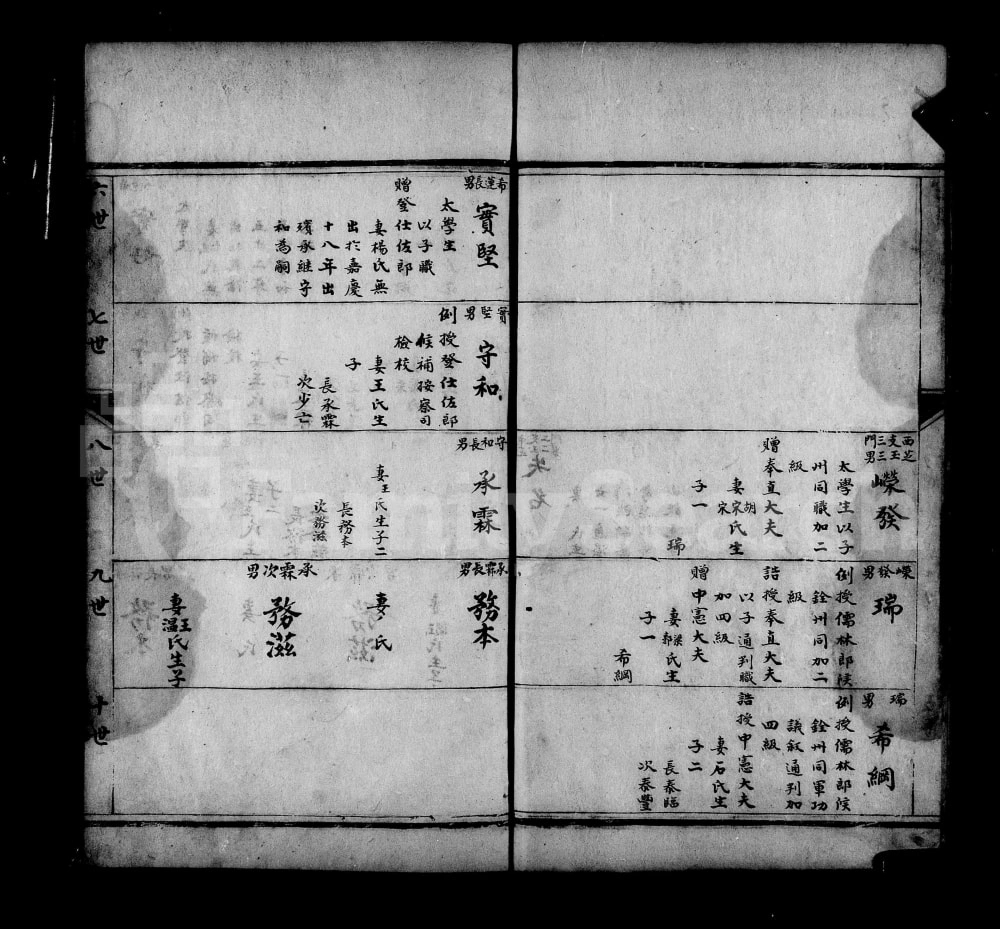 西芝
支玉
三三
門男
嶸發
太學生以子
州同職加二
級
贈奉直大夫
妻胡宋氏生
宋
子一
瑞
嶸發男
瑞
例授儒林郎候
銓州同加二
級
誥授奉直大夫
以子通判職
加四級
贈中憲大夫
妻梁郭氏生
子一
希綱
瑞男
希綱
例授儒林郎候
銓州同軍功
議叙通判加
四級
誥授中憲大夫
妻石氏生
子二
長泰臨
次泰豐
希蓮長男
實堅
太學生
以子職
贈登仕佐郎
妻楊氏無
出於嘉慶
十八年出
瓆承継守
和為嗣
實堅男
守和
例授登仕佐郎
候補按察司
檢校
妻王氏生
子
長承霖
次少亡
守和長男
承霖
妻王氏生子二
長務本
次務滋
承霖長男
務本
妻氏
承霖次男
務滋
妻王溫氏生子
六世
七世
八世
九世
十世